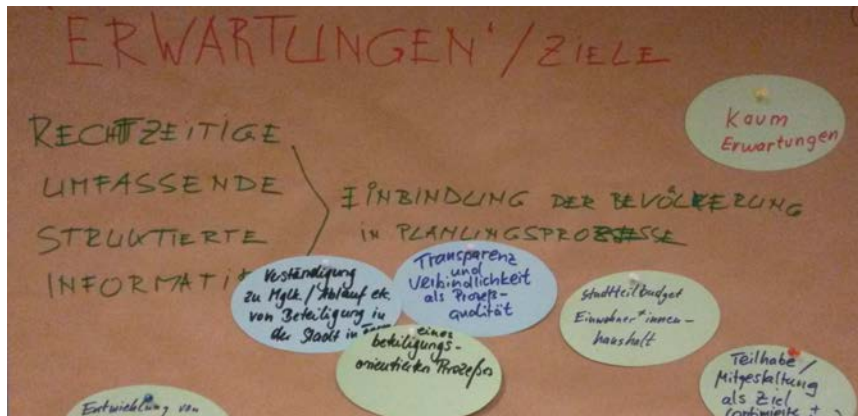 'ERWARTUNGEN'/ZIELE
Kaum
Erwartungen
RECHTZEITIGE
UMFASSENDE
STRUKTIERTE
INFORMATI
EINBINDUNG DER BEVÖLKERUNG
IN PLANUNGSPROZESSE
Verständigung
zu Mglk./Ablauf etc.
von Beteiligung in
der Stadt in
Transparenz
und
Verbindlichkeit
als Prozeß-
qualität
eines
beteiligungs-
orientierten Prozeßes
Stadtteilbudget
Einwohner*innen-
haushalt
Teilhabe/
Mitgestaltung
als Ziel
Entwicklung von